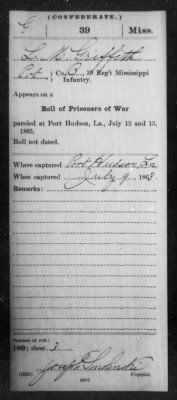 (CONFEDERATE.)
G 39 Miss.
Griffith
Co. B, 39 Reg't Mississippi
Infantry.
Appears on a
Roll of Prisoners of War
paroled at Port Hudson, La., July 12 and 13,
1863.
Roll not dated.
Where captured Port Hudson La
When captured July 9, 1863.
Remarks:
Number of roll:
189; sheet 3
Joseph
Copyist.